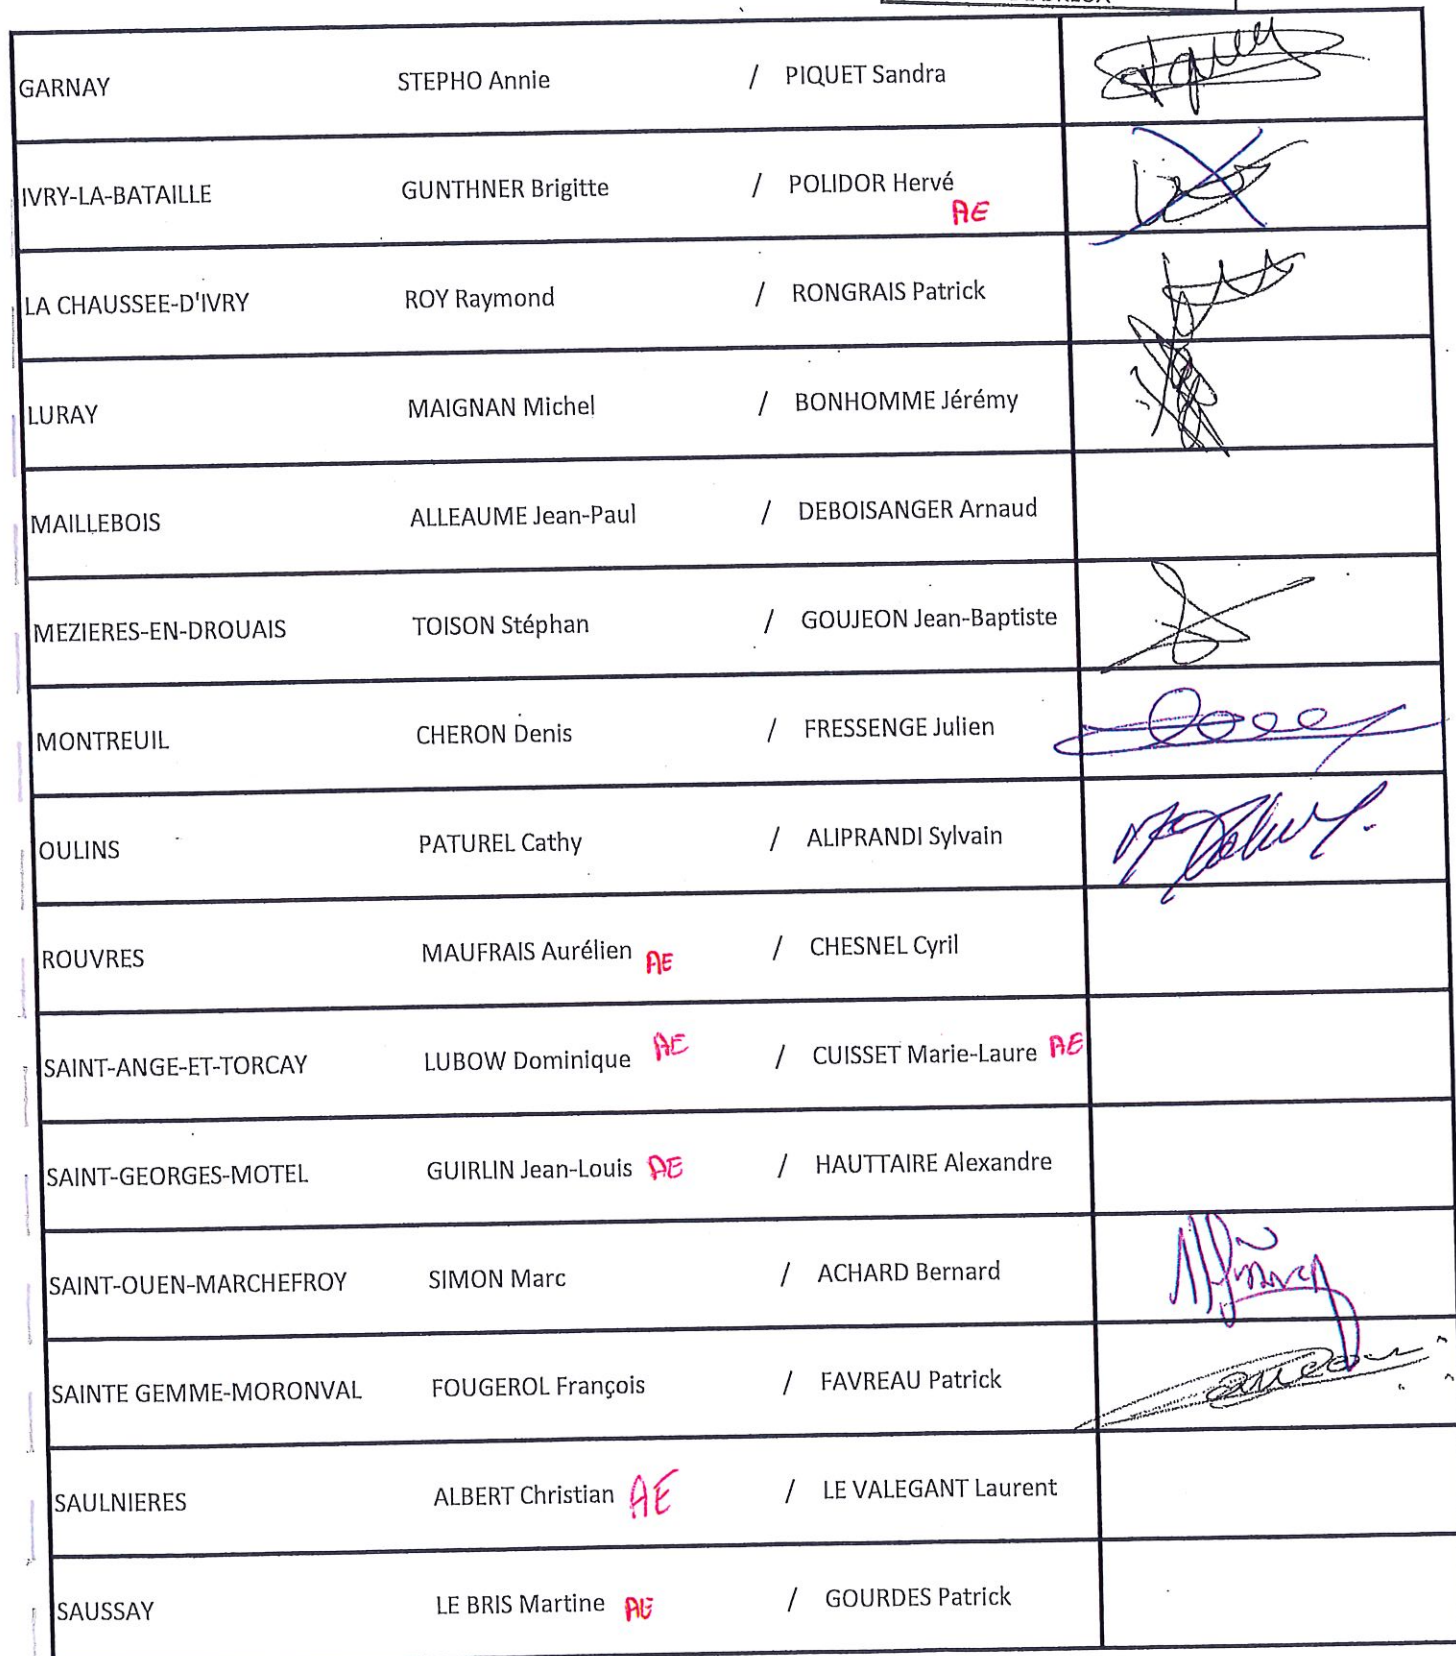 GARNAY STEPHO Annie / PIQUET Sandra
IVRY-LA-BATAILLE GUNTHNER Brigitte / POLIDOR Hervé
AE
LA CHAUSSEE-D'IVRY ROY Raymond / RONGRAIS Patrick
LURAY MAIGNAN Michel / BONHOMME Jérémy
MAILLEBOIS ALLEAUME Jean-Paul / DEBOISANGER Arnaud
MEZIERES-EN-DROUAIS TOISON Stéphan / GOUJEON Jean-Baptiste
MONTREUIL CHERON Denis / FRESSENGE Julien
OULINS PATUREL Cathy / ALIPRANDI Sylvain
ROUVRES MAUFRAIS Aurélien AE / CHESNEL Cyril
SAINT-ANGE-ET-TORCAY LUBOW Dominique AE / CUISSET Marie-Laure AE
SAINT-GEORGES-MOTEL GUIRLIN Jean-Louis AE / HAUTTAIRE Alexandre
SAINT-OUEN-MARCHEFROY SIMON Marc / ACHARD Bernard
SAINTE GEMME-MORONVAL FOUGEROL François / FAVREAU Patrick
SAULNIERES ALBERT Christian AE / LE VALEGANT Laurent
SAUSSAY LE BRIS Martine AE / GOURDES Patrick